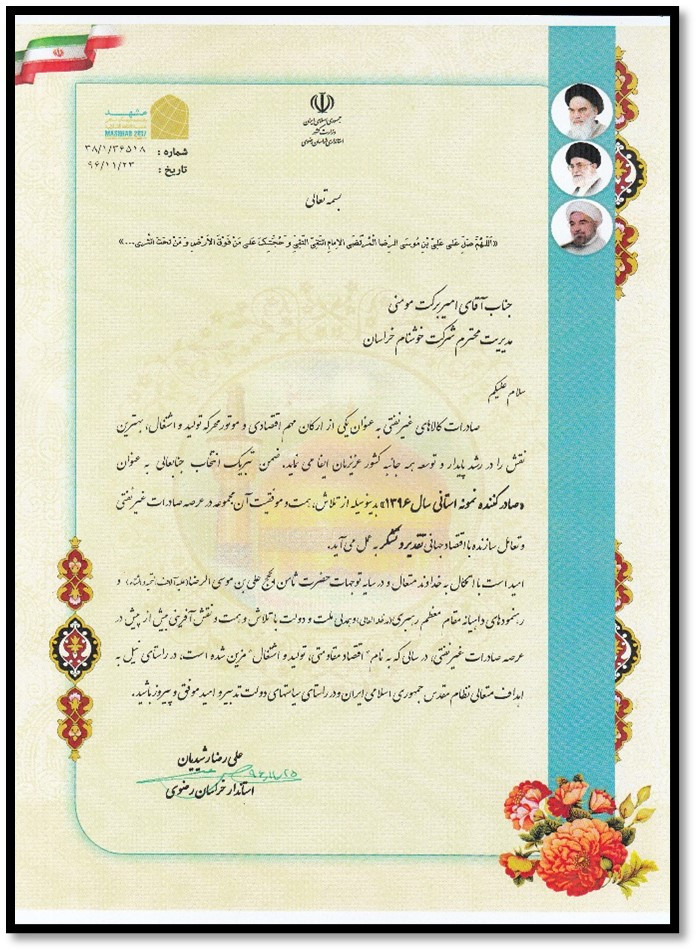 جمهوری اسلامی ایران
وزارت کشور
استانداری خراسان رضوی
مشهد
MASHHAD 2017
شماره : ۳۸/۱/۳۶۵۱۸
تاریخ : ۹۶/۱۱/۲۳
بسمه تعالی
«اَللهُمَّ صَلِّ عَلی عَلِیِّ بْنِ مُوسَی الرِّضَا الْمُرتَضی الاِمامِ التَّقِیِّ النَّقِیِّ وَ حُجَّتِکَ عَلی مَنْ فَوْقَ الاَرْضِ وَ مَنْ تَحْتَ الثَّری...»
جناب آقای امیر برکت مومنی
مدیریت محترم شرکت خوشنام خراسان
سلام علیکم
صادرات کالاهای غیرنفتی به عنوان یکی از ارکان مهم اقتصادی و موتور محرکه تولید و اشتغال، بهترین
نقش را در رشد پایدار و توسعه همه جانبه کشور عزیزمان ایفا می نماید. ضمن تبریک انتخاب جنابعالی به عنوان
«صادرکننده نمونه استانی سال ۱۳۹۶» بدینوسیله از تلاش، همت و موفقیت آن مجموعه در عرصه صادرات غیرنفتی
و تعامل سازنده با اقتصاد جهانی تقدیر و تشکر به عمل می آید.
امید است با اتکال به خداوند متعال و در سایه توجهات حضرت ثامن الحجج علی بن موسی الرضا (علیه آلاف التحیه والثناء) و
رهنمودهای داهیانه مقام معظم رهبری (مدظله العالی) و همدلی ملت و دولت با تلاش و همت و نقش آفرینی بیش از پیش در
عرصه صادرات غیرنفتی، در سالی که به نام "اقتصاد مقاومتی، تولید و اشتغال" مزین شده است، در راستای نیل به
اهداف متعالی نظام مقدس جمهوری اسلامی ایران و در راستای سیاستهای دولت تدبیر و امید موفق و پیروز باشید.
علی رضا رشیدیان
استاندار خراسان رضوی